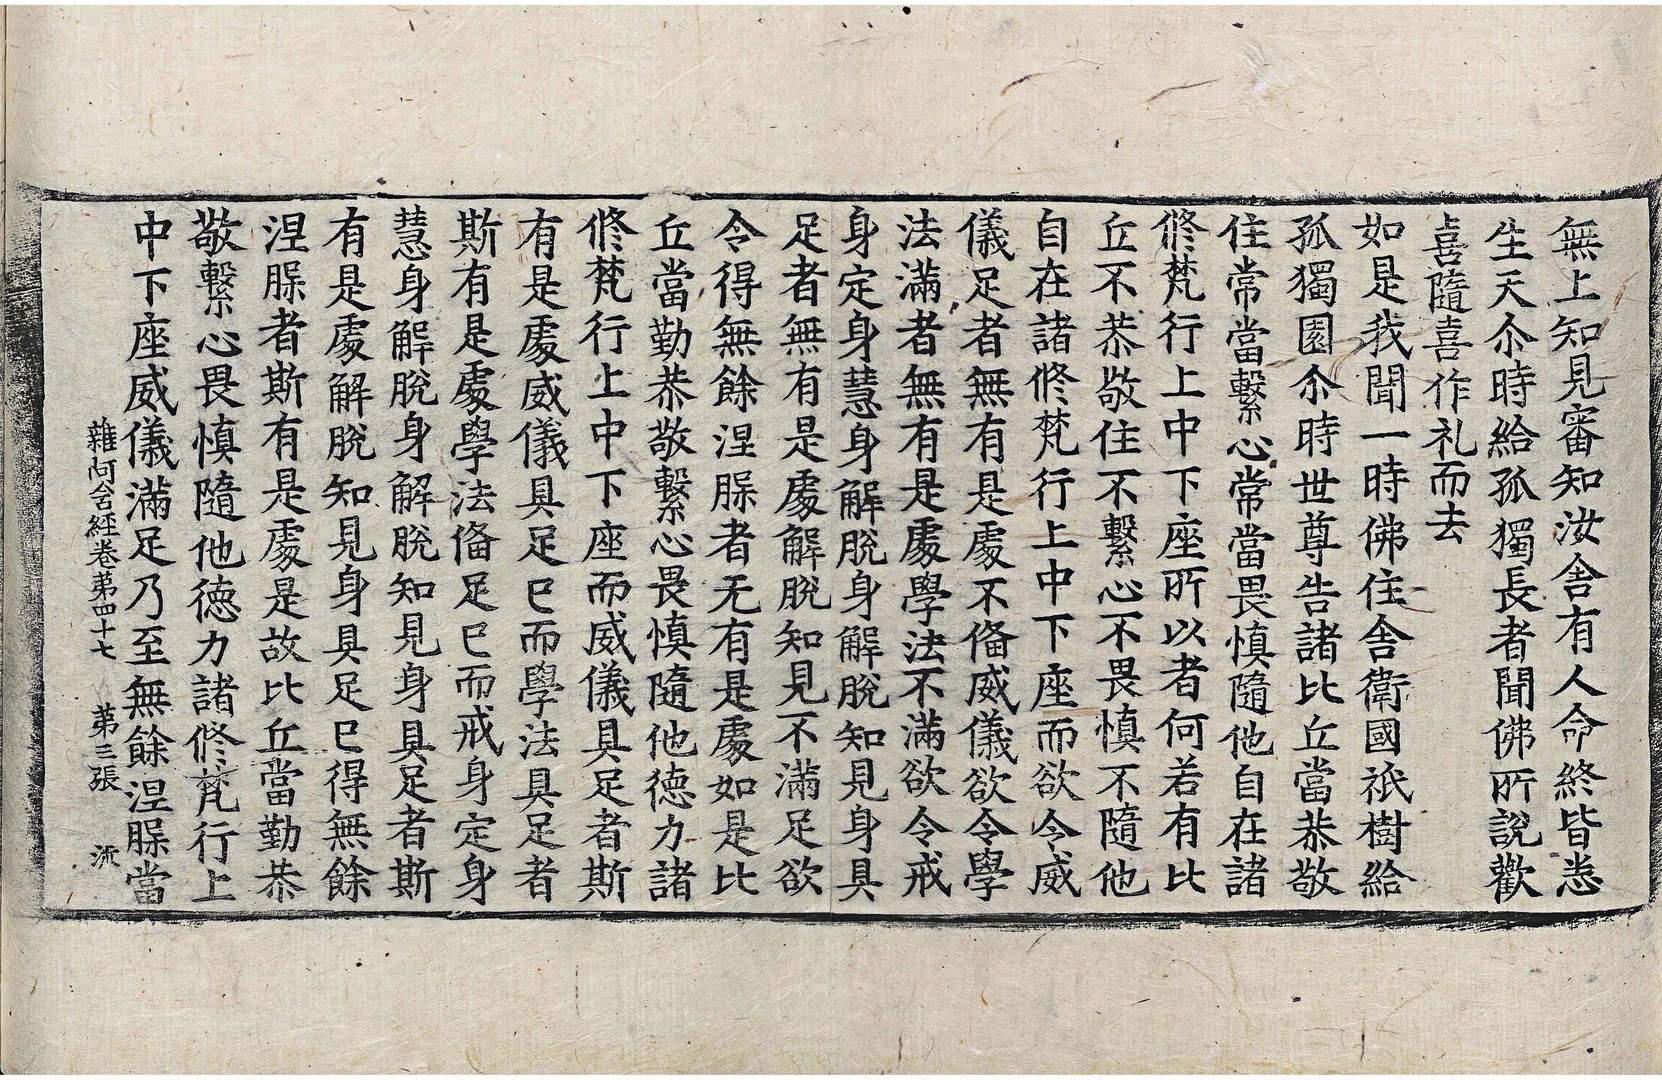 無上知見審知汝舍有人命終皆悉
生天尒時給孤獨長者聞佛所說歡
喜隨喜作礼而去
如是我聞一時佛住舍衛國祇樹給
孤獨園尒時世尊告諸比丘當恭敬
住常當繫心常當畏慎隨他自在諸
修梵行上中下座所以者何若有比
丘不恭敬住不繫心不畏慎不隨他
自在諸修梵行上中下座而欲令威
儀足者無有是處不俻威儀欲令學
法滿者無有是處學法不滿欲令戒
身定身慧身解脫身解脫知見身具
足者無有是處解脫知見不滿足欲
令得無餘涅槃者无有是處如是比
丘當勤恭敬繫心畏慎隨他德力諸
修梵行上中下座而威儀具足者斯
有是處威儀具足已而學法具足者
斯有是處學法俻足已而戒身定身
慧身解脫身解脫知見身具足者斯
有是處解脫知見身具足已得無餘
涅槃者斯有是處是故比丘當勤恭
敬繫心畏慎隨他德力諸修梵行上
中下座威儀滿足乃至無餘涅槃當
雜阿含經卷第四十七 第三張 流